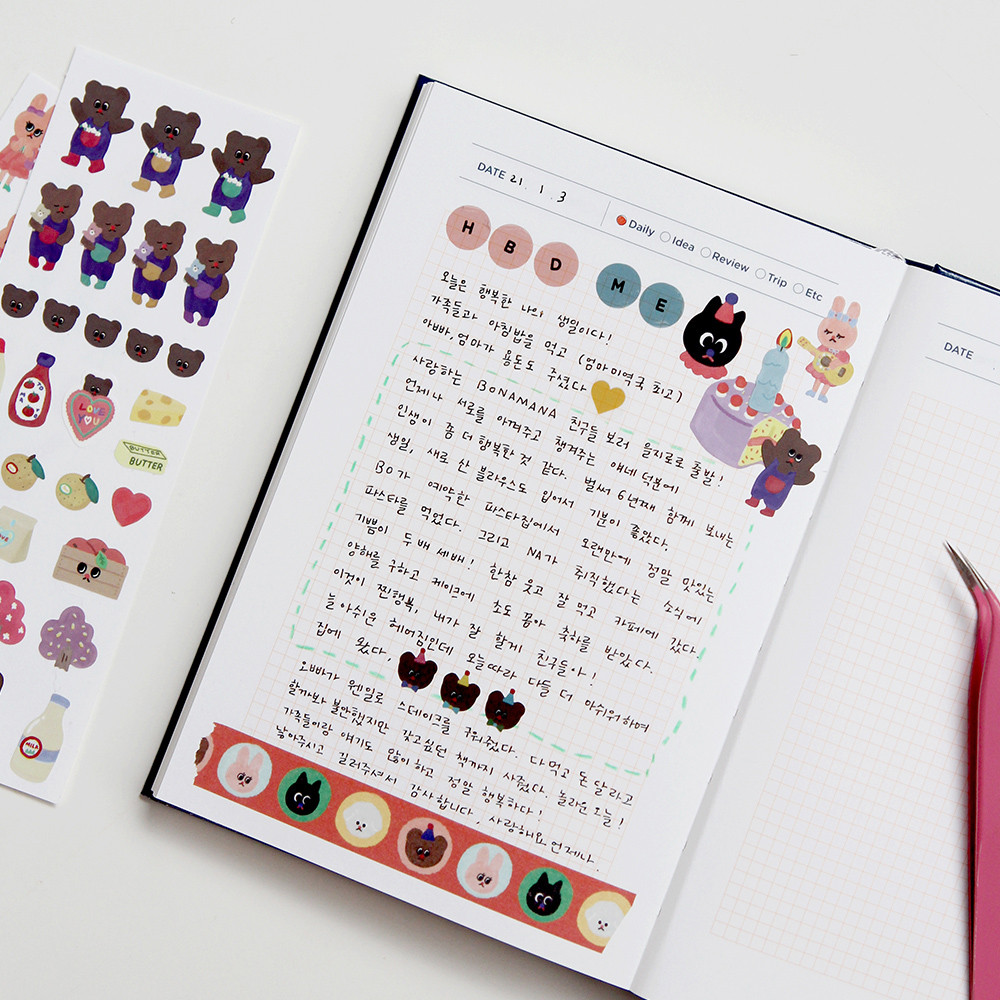 DATE 21. 1. 3
Daily Idea Review Trip Etc
HBD ME
오늘은 행복한 나의 생일이다!
가족들과 아침밥을 먹고 (엄마미역국 최고)
아빠, 엄마가 용돈도 주셨다
사랑하는 BONAMANA 친구들 보러 을지로로 출발!
언제나 서로를 아껴주고 챙겨주는 얘네 덕분에
인생이 좀 더 행복한 것 같다. 벌써 6년째 함께 보내는
생일, 새로 산 블라우스도 입어서 기분이 좋았다.
BO가 예약한 파스타집에서 오랜만에 정말 맛있는
파스타를 먹었다. 그리고 NA가 취직했다는 소식에
기쁨이 두배 세배! 한참 웃고 잘 먹고 카페에 갔다.
양해를 구하고 케이크에 초도 꼽아 축하를 받았다.
이것이 찐행복, 내가 잘 할게 친구들아!
늘 아쉬운 헤어짐인데 오늘따라 다들 더 아쉬워하며
집에 왔다.
오빠가 웬일로 스테이크를 구워줬다. 다먹고 돈 달라고
할까봐 불안했지만 갖고싶던 책까지 사줬다. 놀라운 오늘!
가족들이랑 얘기도 많이하고 정말 행복하다!
낳아주시고 길러주셔서 감사합니다, 사랑해요 언제나.
DATE
LOVE YOU
BUTTER
BUTTER
MILK